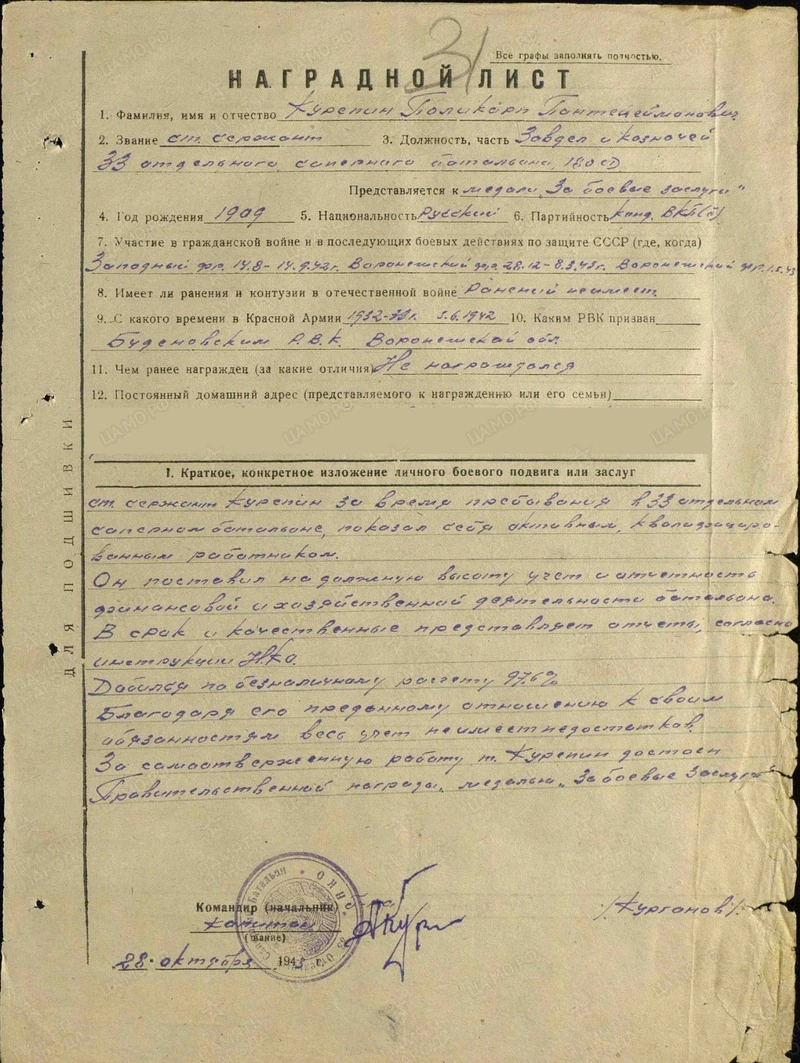 31
Все графы заполнять полностью.
НАГРАДНОЙ ЛИСТ
1. Фамилия, имя и отчество Курепин Поликарп Пантелеймонович
2. Звание ст. сержант 3. Должность, часть Завдел и казначей
33 отдельного саперного батальона 180 сд
Представляется к медали „За боевые заслуги"
4. Год рождения 1909 5. Национальность Русский 6. Партийность канд. ВКП(б)
7. Участие в гражданской войне и в последующих боевых действиях по защите СССР (где, когда)
Западный фр. 14.8- 14.9.42г. Воронежский фр. 28.12- 8.3.43г. Воронежский фр. 1.5.43
8. Имеет ли ранения и контузии в отечественной войне Ранений не имеет
9. С какого времени в Красной Армии 5.6.1942 10. Каким РВК призван
Буденовским Р.В.К. Воронежской обл.
11. Чем ранее награжден (за какие отличия) Не награждался
12. Постоянный домашний адрес (представляемого к награждению или его семьи)
ДЛЯ ПОДШИВКИ
I. Краткое, конкретное изложение личного боевого подвига или заслуг
ст. сержант Курепин за время пребывания в 33 отдельном
саперном батальоне, показал себя активным, квалифициро-
ванным работником.
Он поставил на должную высоту учет и отчетность
финансовой и хозяйственной деятельности батальона.
В срок и качественные представляет отчеты, согласно
инструкции НКО.
Добился по безналичному расчету 97,6%
Благодаря его преданному отношению к своим
обязанностям весь учет не имеет недостатков.
За самоотверженную работу т. Курепин достоен
Правительственной награды, медалью „За боевые заслуги"
Командир (начальник)
капитан
(звание)
/Курганов/
28 октября 1943 г.